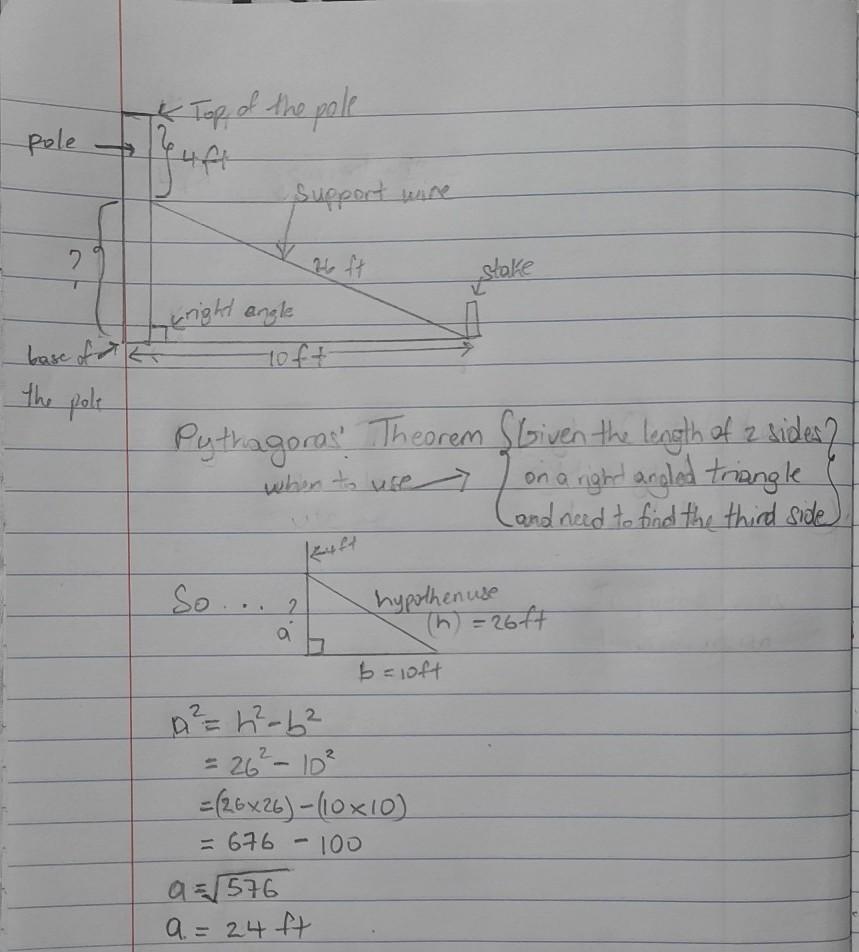 Top of the pole
pole
4ft
Support wire
?
26 ft
stake
right angle
base of
10ft
the pole
Pythagoras' Theorem {Given the length of 2 sides}
when to use → on a right angled triangle
and need to find the third side
4ft
So... ?
hypothenuse
(h) = 26ft
a
b = 10ft
a² = h² - b²
= 26² - 10²
= (26×26) - (10×10)
= 676 - 100
a = √576
a = 24 ft